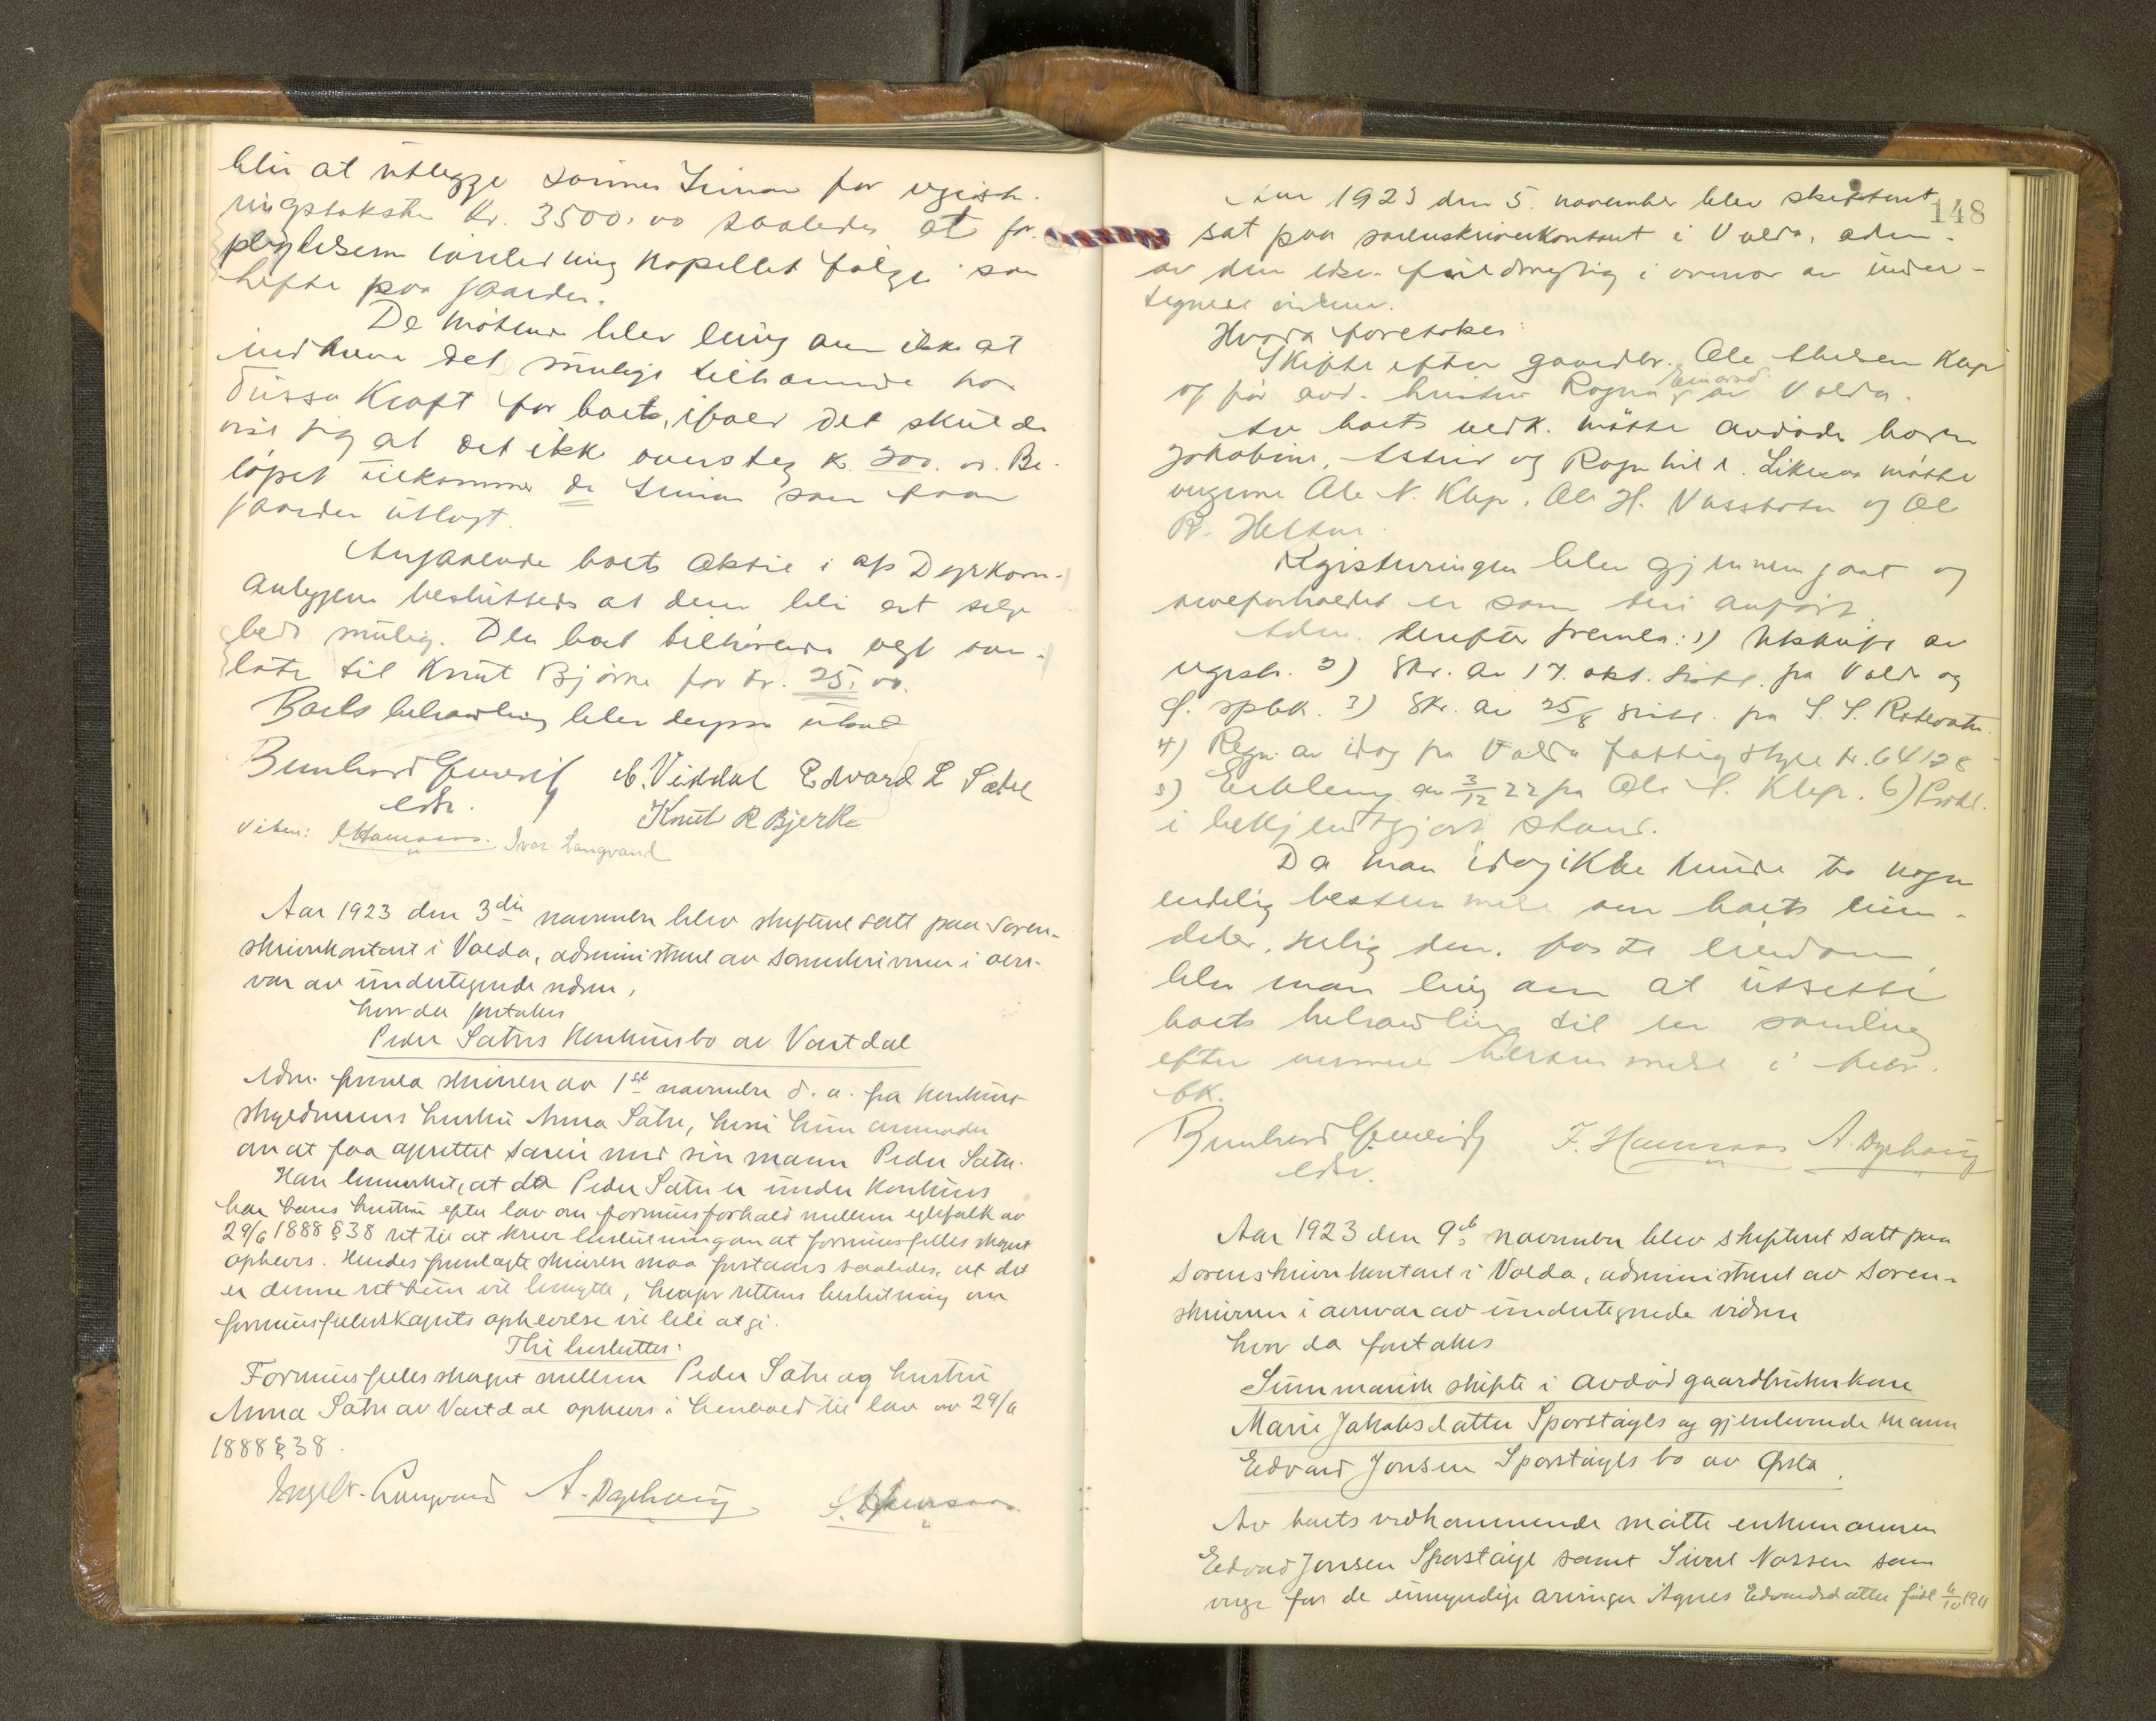 blir at utlegge sønnen Simon for registe-
ringstaksten Kr. 3500,00 saaledes at for-
pligtelsen kapellet følger som
hefte paa gaarden.
De møtende blev enig om ikke at
inddrive det mulige tilhørende hos
Tussa Kraft for boet, ifald det skulde
vise sig at det ikke oversteg Kr. 200.00. Be-
løpet tilkommer da Simon som faar
gaarden utlagt.
Angaaende boets aktie i A/S Dyrkorn-
anleggene besluttedes at den blir at selge
bedst mulig. Den boet tilhørende
til Knut Bjerke for kr. 25,00.
Boets behandling blev derpaa utsat
Bernhard C. Viddal Edvard L Sætre
edsv. Knut R Bjerke
Vitner: J. Hamraas. Ivar Langvand
Aar 1923 den 3die november blev skifteret satt paa soren-
skriverkontoret i Volda, administrert av sorenskriveren i over-
vær av undertegnede vidner,
hvor da foretokes
Peder Sætres konkursbo av Vartdal
Adm. fremla skrivelse av 1st november d.a. fra konkurs-
skyldnerens hustru Anna Sætre, hvori hun anmoder
om at faa oprettet særeie med sin mann Peder Sætre.
Han bemerket, at da Peder Sætre er under konkurs
har hans hustru efter lov om formuesforhold mellem egtefolk av
29/6 1888 § 38 ret til at kreve beslutning om at formuesfellesskapet
opheves. Hendes fremlagte skrivelse maa forstaaes saaledes, at det
er denne ret hun vil benytte, hvorfor rettens beslutning om
formuesfellesskapets ophevelse vil bli at gi.
Thi besluttes:
Formuesfellesskapet mellem Peder Sætre og hustru
Anna Sætre av Vartdal opheves i henhold til lov av 29/6
1888 § 38.
Langvand A. Dyrhaug J. Hamraas
148
Aar 1923 den 5. november blev skifteret
sat paa sorenskriverkontoret i Volda, adm.
av den edsv. fuldmegtig i overvær av under-
tegnede vidner.
Hvorda foretokes:
Skifte efter gaardbr. Ole Nilsen Klep
og før avd. hustru Ragna av Volda.
Av boets vedk. møtte avdødes barn
Jakobine, Astrid og Ragnhild. Likesaa møtte
vergerne Ole N. Klep, Ole H. Vassbotn og Ole
R. Heltne.
Registreringen blev gjennemgaat og
arveforholdet er som deri anført.
Adm. derefter fremla: 1) Utskrift av
registr. 2) Skr. av 17. okt. sistl. fra Volda og
Ø. spbk. 3) Skr. av 25/8 sistl. fra S. S. Rotevatn.
4) Regn. av idag fra Volda fattigstyre kr. 641,28
5) Erklering av 3/12 22 fra Ole S. Klep. 6) Prokl.
i bekjendtgjort stand.
Da man idag ikke kunde ta nogen
endelig bestemmelse om boets eien-
deler, nemlig den faste eiendom,
blev man enig om at utsette
boets behandling til en samling
efter nærmere bestemmelse i
bk.
Bernhard J. Hamraas A. Dyrhaug
edsv.
Aar 1923 den 9de november blev skifteret satt paa
sorenskriverkontoret i Volda, administrert av soren-
skriveren i overvær av undertegnede vidner
hvor da foretokes
Summarisk skifte i avdød gaardbrukerkone
Marie Jakobsdatter Sporstøyls og gjenlevende mann
Edvard Jonsen Sporstøyls bo av Ørsta.
Av boets vedkommende møtte enkemannen
Edvard Jonsen Sporstøyl samt Sivert Nossen som
verge for de umyndige arvinger Agnes Edvardsdatter født 6/10 1911